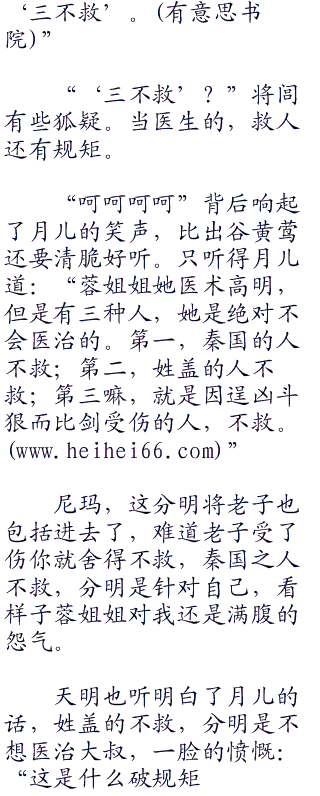 ‘三不救’。(有意思书
院)”
“‘三不救’？”将闾
有些狐疑。当医生的，救人
还有规矩。
“呵呵呵呵”背后响起
了月儿的笑声，比出谷黄莺
还要清脆好听。只听得月儿
道：“蓉姐姐她医术高明，
但是有三种人，她是绝对不
会医治的。第一，秦国的人
不救；第二，姓盖的人不
救；第三嘛，就是因逞凶斗
狠而比剑受伤的人，不救。
(www.heihei66.com)”
尼玛，这分明将老子也
包括进去了，难道老子受了
伤你就舍得不救，秦国之人
不救，分明是针对自己，看
样子蓉姐姐对我还是满腹的
怨气。
天明也听明白了月儿的
话，姓盖的不救，分明是不
想医治大叔，一脸的愤慨：
“这是什么破规矩